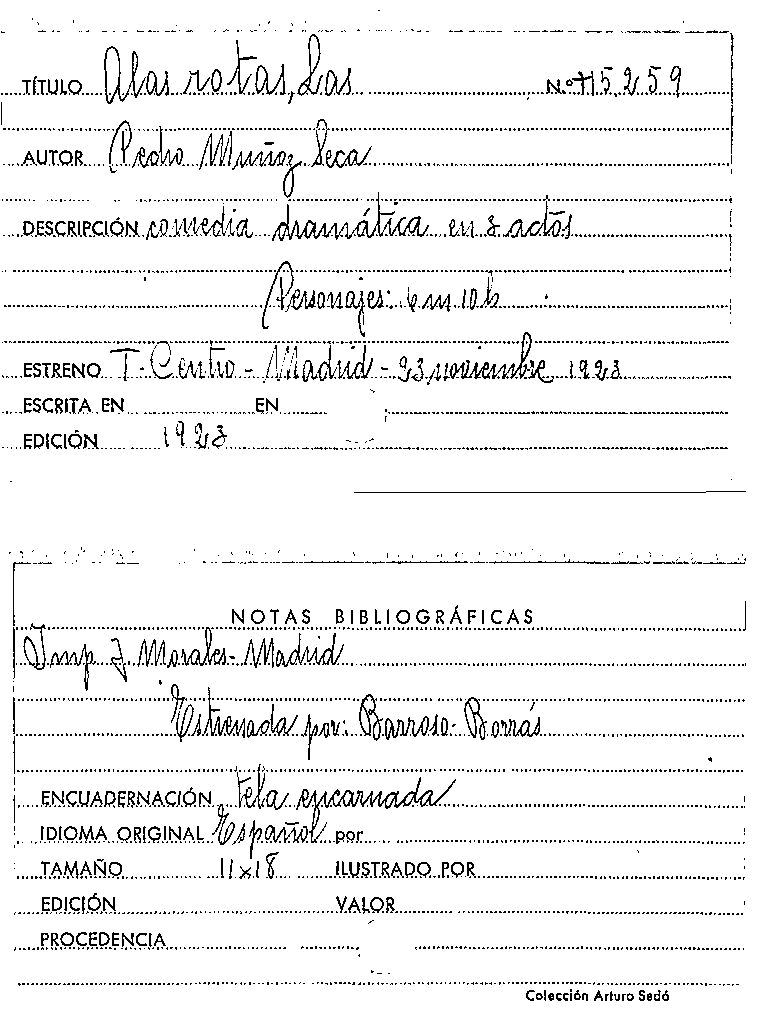 TÍTULO Alas rotas, Las N.º 15259
AUTOR Pedro Muñoz Seca
DESCRIPCIÓN comedia dramática en 3 actos
Personajes: 6 m 10 h
ESTRENO T. Centro - Madrid - 23 noviembre 1923
ESCRITA EN EN
EDICIÓN 1923
NOTAS BIBLIOGRÁFICAS
Imp J. Morales - Madrid
Estrenada por: Barroso - Borrás
ENCUADERNACIÓN tela encarnada
IDIOMA ORIGINAL Español por
TAMAÑO 11x18 ILUSTRADO POR
EDICIÓN VALOR
PROCEDENCIA
Colección Arturo Sedó